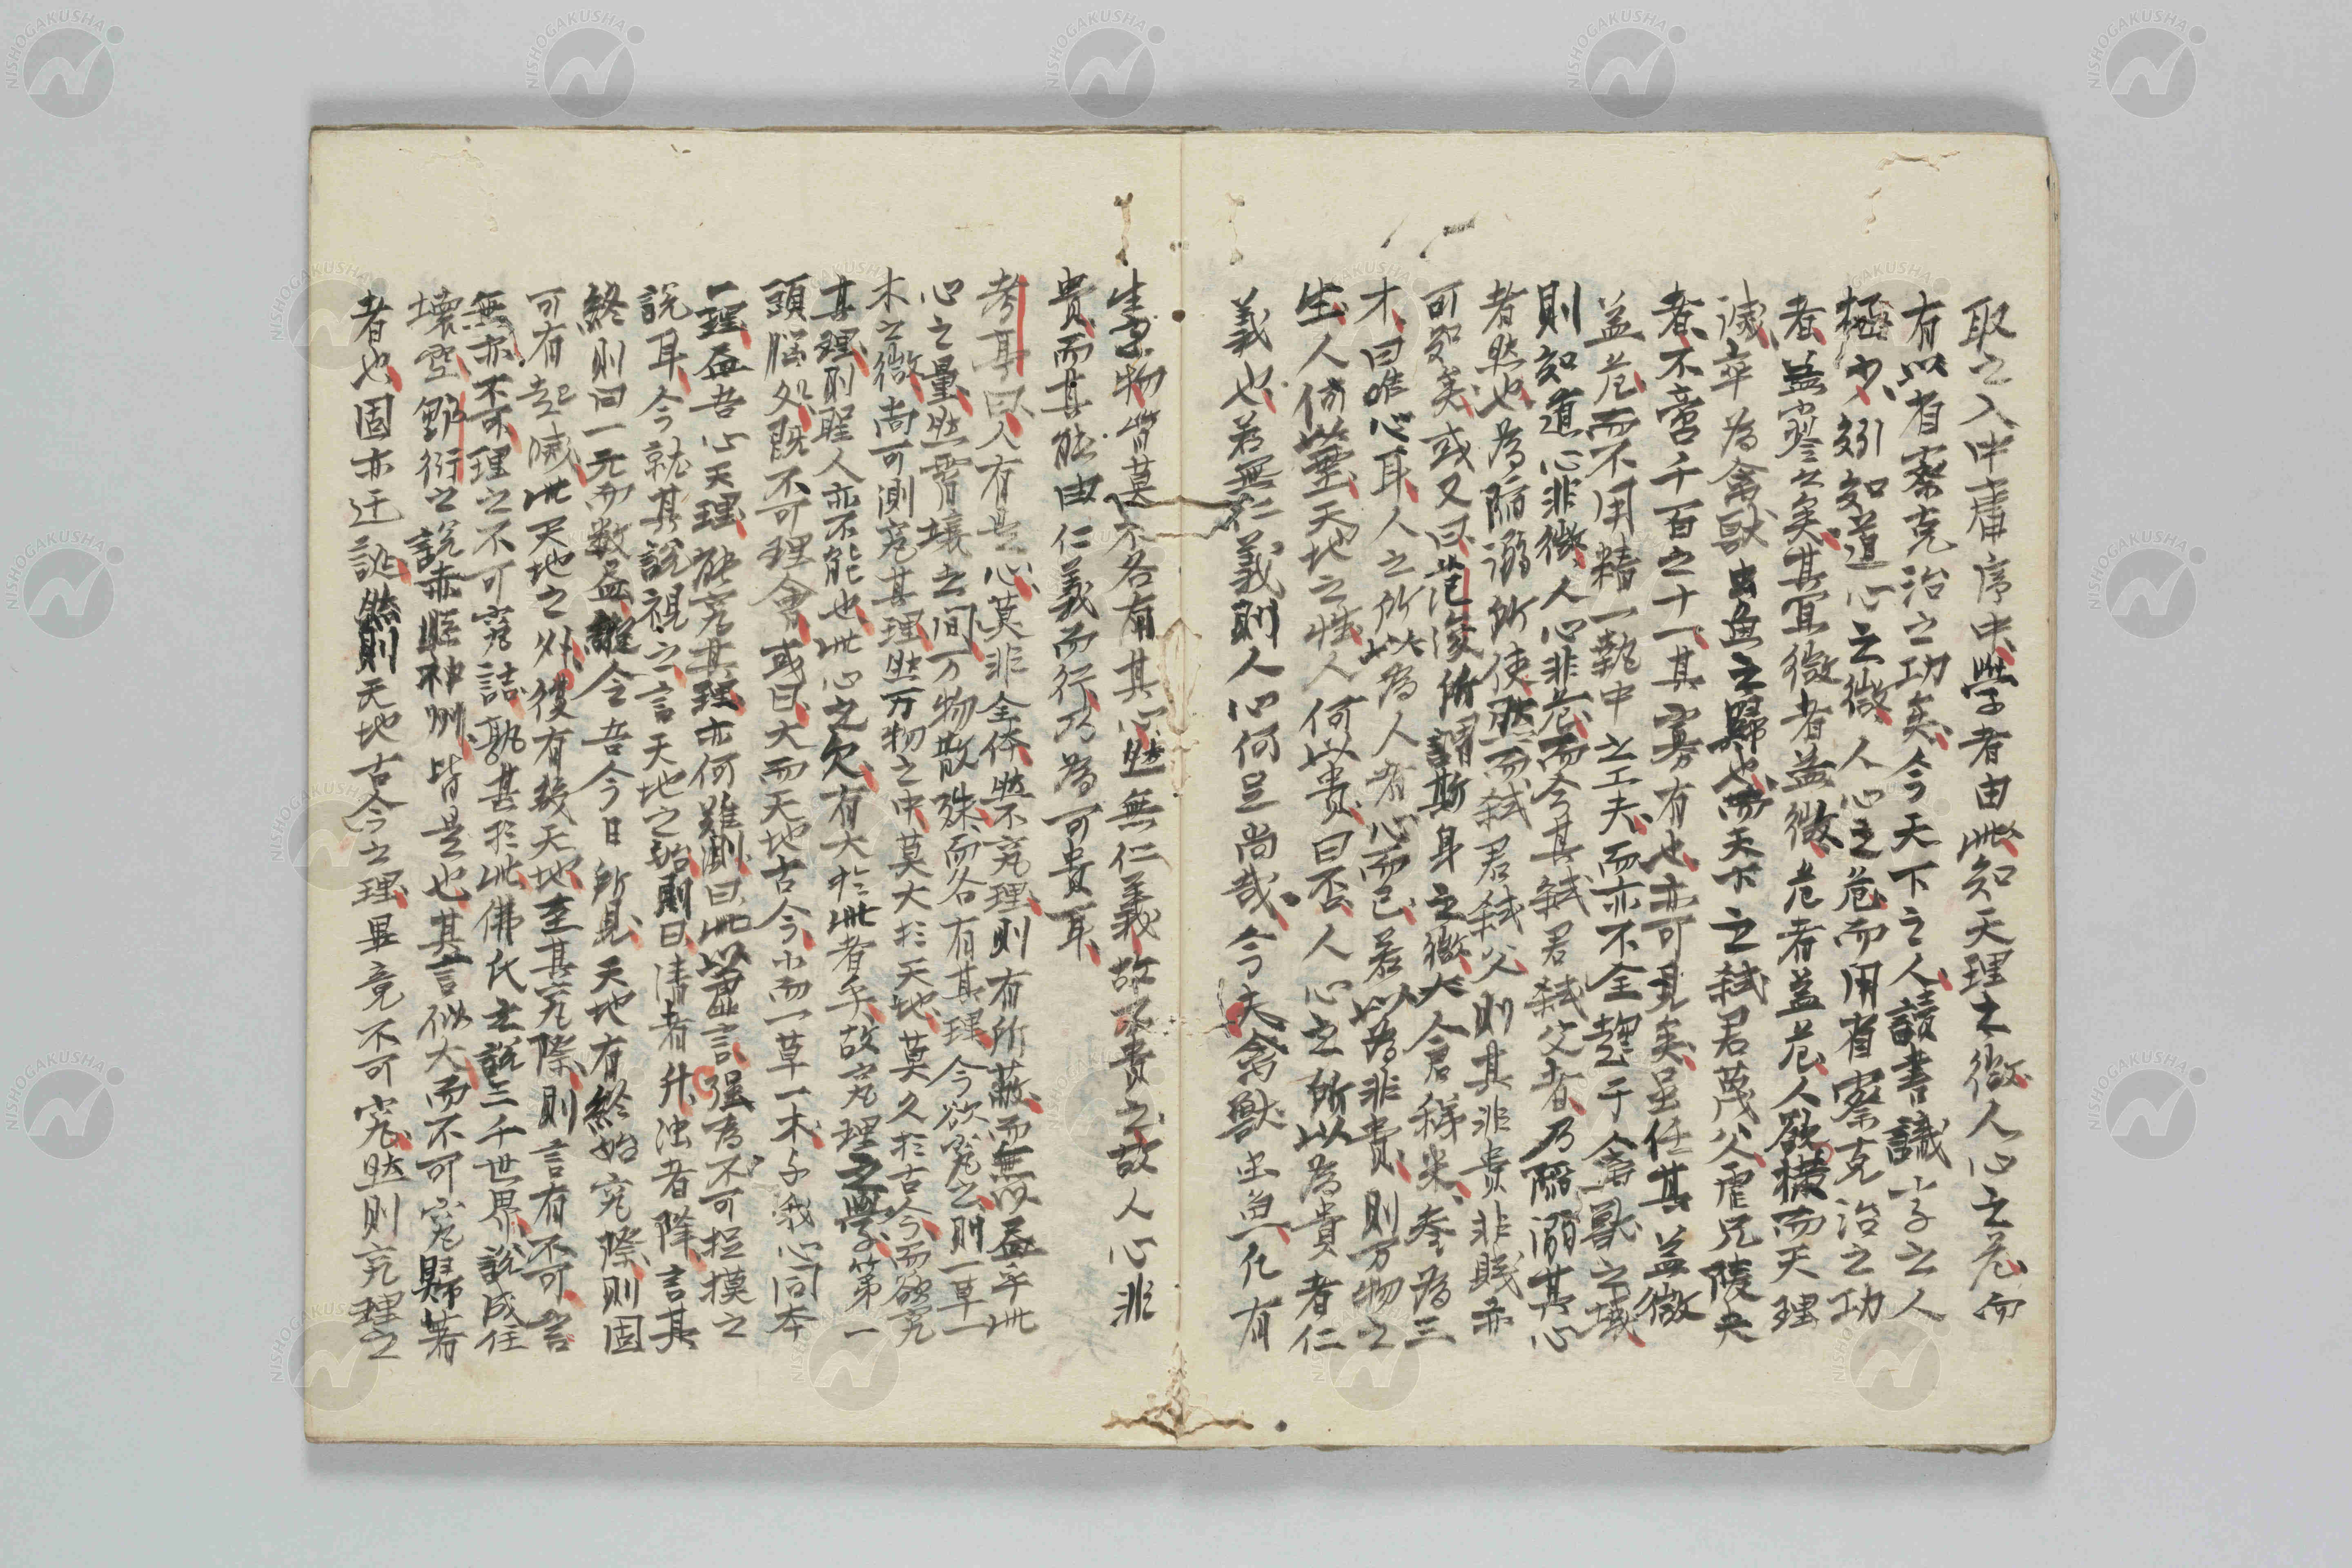 取之入中庸序中學者由此知天理之微人心之危而
有以省察克治之功矣今天下之人讀書識字之人
極少矧知道心之微人心之危而用省察克治之功
者益寥々矣其宜微者益微危者益危人欲橫而天理
滅卒為禽獸虫魚之歸也而天下之弒君蔑父虐兄陵夫
者不啻千百之十一其寡有也亦可見矣虽任其益微
益危而不用精一執中之工夫而亦不全趨于禽獸之域
則知道心非微人心非危而今其弒君弒父者乃陷溺其心
者然也為陷溺所使然而弒君弒父則其非貴非賤亦
可知矣或又曰范浚所謂斯身之微大倉稊米參為三
才曰唯心耳人之所以為人者心而已若以為非貴則万物之
生人倚藐天地之性人何以貴曰否人心之所以為貴者仁
義也若無仁義則人心何足尚哉今夫禽獸虫魚凡有
生之物皆莫不各有其心然無仁義故不貴之故人心非
貴而其能由仁義而行乃為可貴耳
考耳曰人有是心莫非全体然不究理則有所蔽而無以益乎此
心之量然霄壤之間万物散殊而各有其理今欲究之則一草一
木之微尚可測究其理然万物之中莫大於天地莫久於古今而欲究
其理則聖人亦不能也此心之欠有大於此者乎故究理之學第一
頭腦処既不可理會或曰大而天地古今小而一草一木与我心同本
一理益吾心天理能究其理亦何難測曰此以空言强為不可捉摸之
說耳今就其說視之言天地之始則曰清者升濁者降言其
終則曰一元而數益雖今吾今日所見天地有終始究際則固
可有起滅此天地之外復有幾天地至其究際則言有不可言
無亦不可理之不可究詰孰甚於此佛氏之說三千世界說成住
壞空鄒衍之說赤縣神州皆是也其言似大而不可究歸著
者也固亦迂誕然則天地古今之理畢竟不可究然則究理之